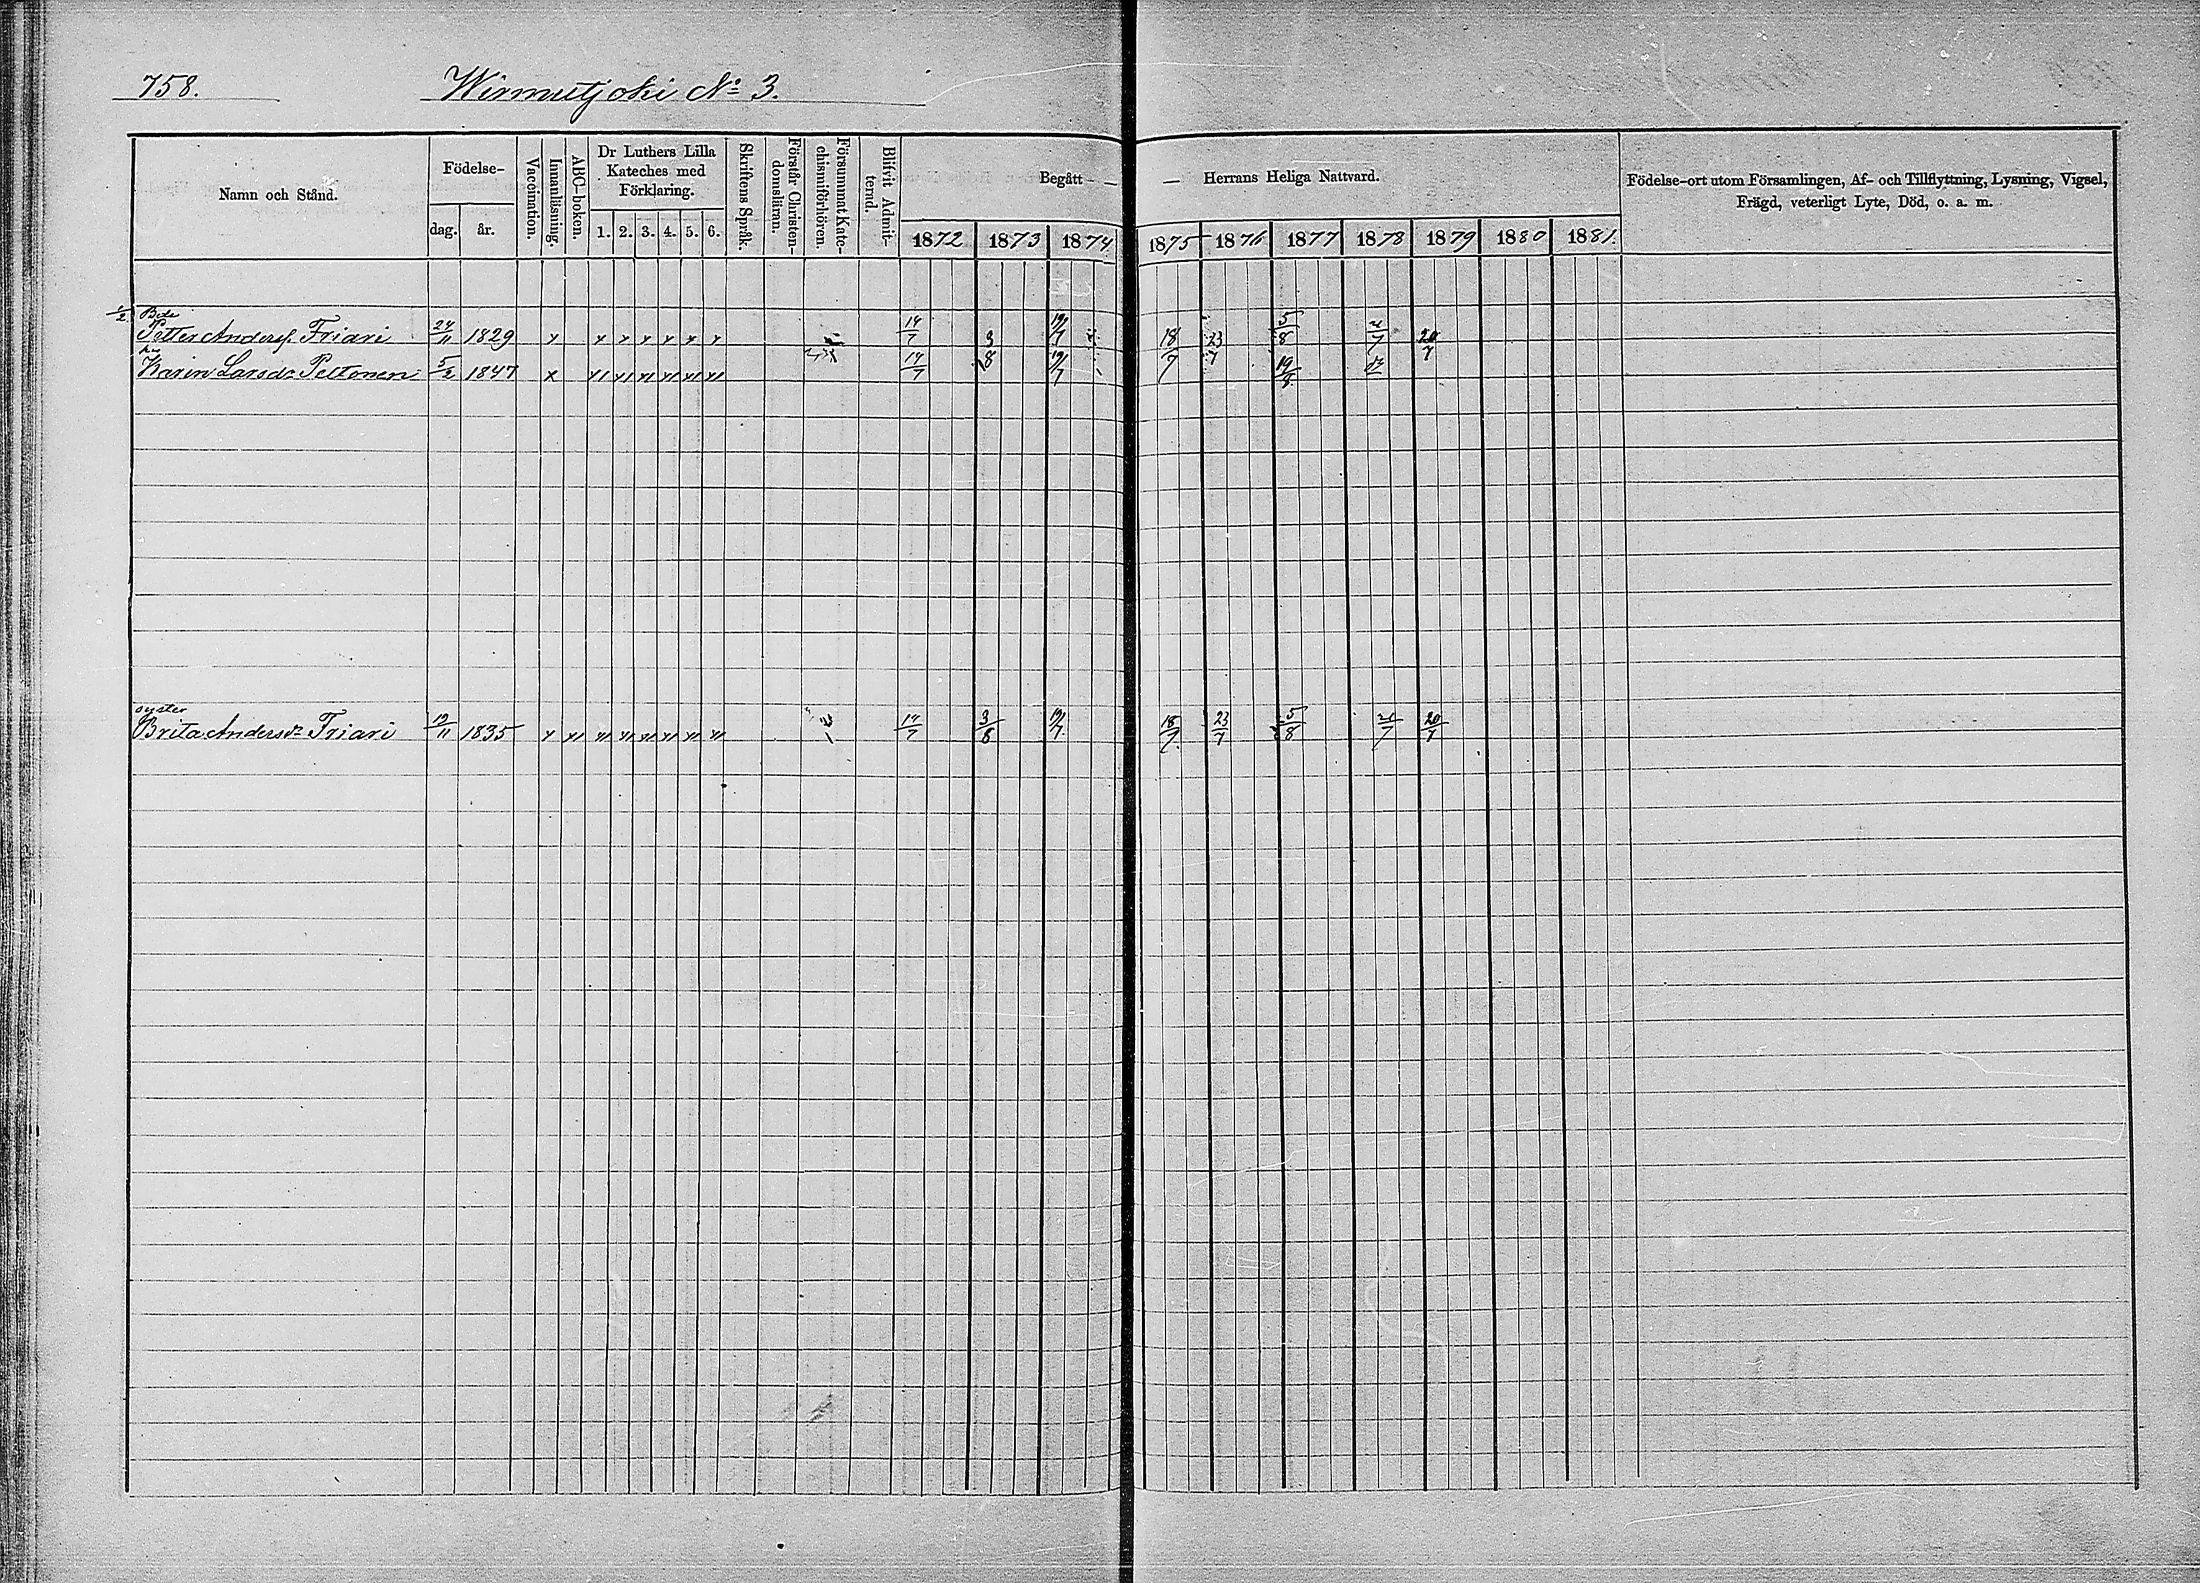 758. Wirmutjoki No 3.
Namn och Stånd. Födelse- Vaccination. Innanläsning. ABC-boken. Dr Luthers Lilla Kateches med Förklaring. Skriftens Språk. Förstår Christendomsläran. Försummat Katechismiförhören. Blifvit Admitterad. Begått — — Herrans Heliga Nattvard. Födelse-ort utom Församlingen, Af- och Tillflyttning, Lysning, Vigsel,
Frägd, veterligt Lyte, Död, o. a. m.
dag. år. 1. 2. 3. 4. 5. 6. 1872 1873 1874 1875 1876 1877 1878 1879 1880 1881.
1/2 Bde
Petter Anderss. Friari 24/11 1829 x x x x x x x 14/7 3 19/7 18/7 23/7 5/8 21/7 20/7
hu
Karin Larsdr Peltonen 5/2 1847 x 14/7 8 19/7 19/8
syster
Brita Andersdr Friari 19/11 1835 14/7 3/8 19/7 18/7 23/7 5/8 21/7 20/7